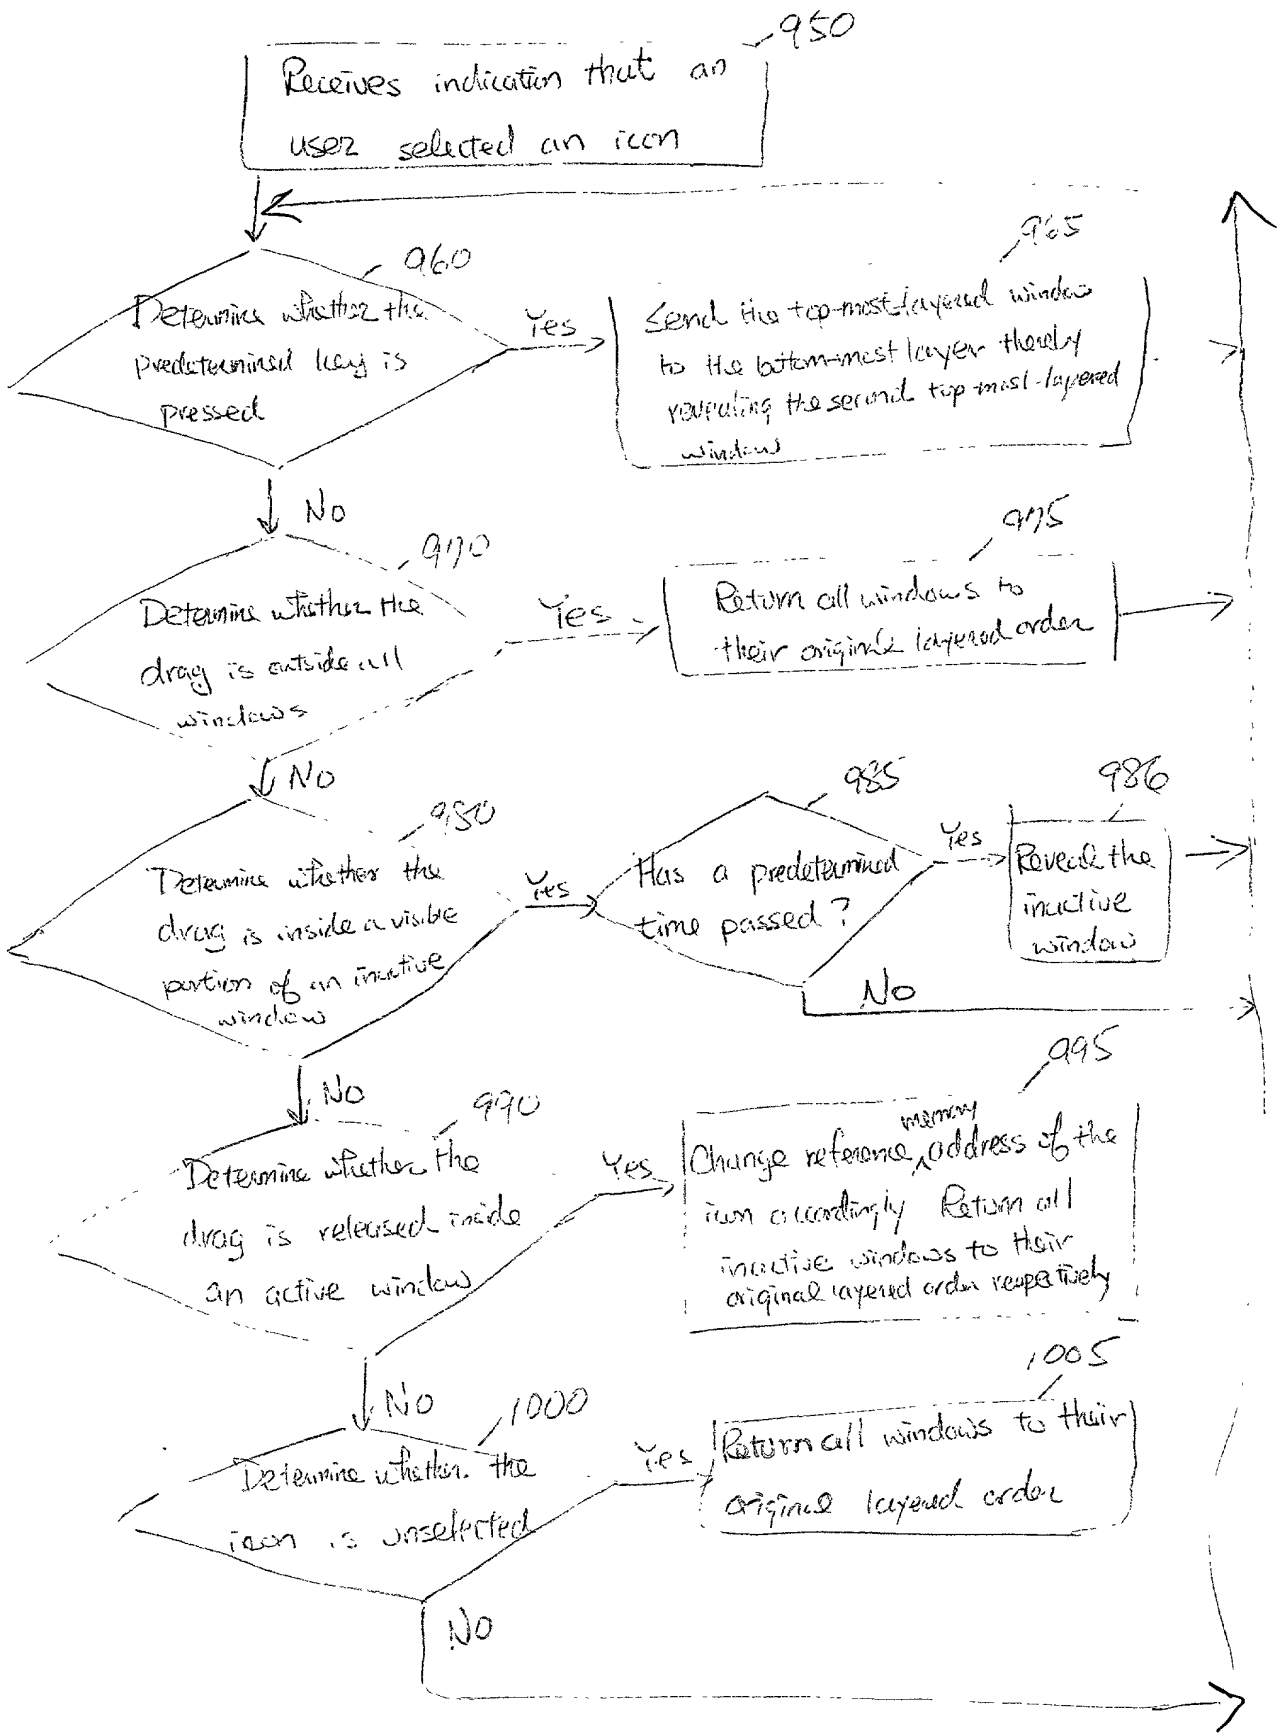 950
Receives indication that an
user selected an icon
960
Determine whether the
predetermined key is
pressed
Yes
965
Send the top-most-layered window
to the bottom-most layer thereby
revealing the second top-most-layered
window
No
970
Determine whether the
drag is outside all
windows
Yes
975
Return all windows to
their original layered order
No
980
Determine whether the
drag is inside a visible
portion of an inactive
window
Yes
985
Has a predetermined
time passed?
Yes
986
Reveal the
inactive
window
No
No
990
Determine whether the
drag is released inside
an active window
Yes
995
memory
Change reference ^ address of the
icon accordingly Return all
inactive windows to their
original layered order respectively
No
1000
Determine whether the
icon is unselected
Yes
1005
Return all windows to their
original layered order
No